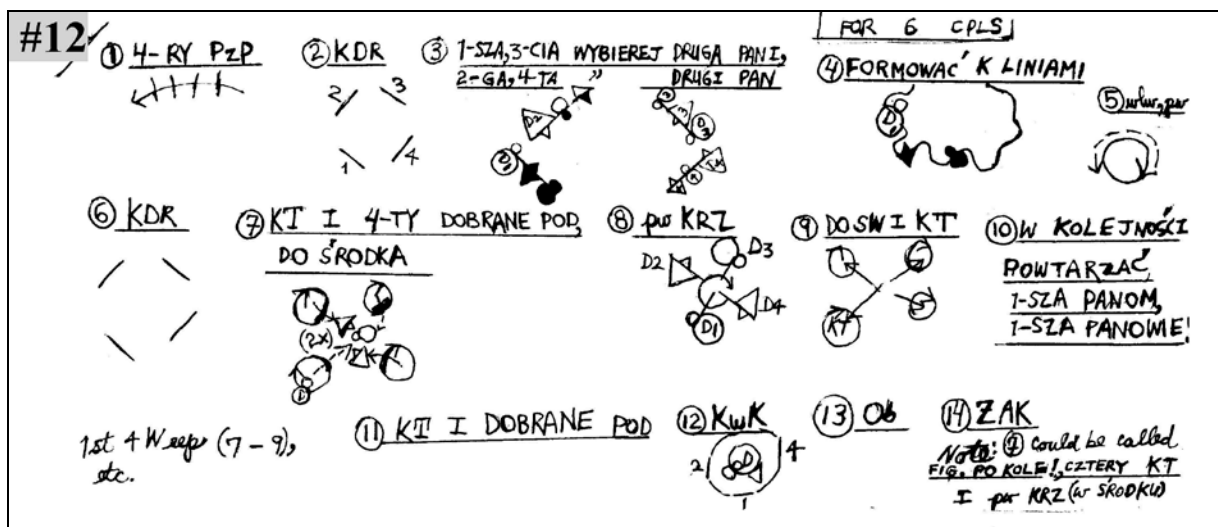 #12
FOR 6 CPLS
① 4-RY PzP
② KDR
2 3
1 4
③ 1-SZA, 3-CIA WYBIEREJ DRUGA PANI,
2-GA, 4-TA " DRUGI PAN
④ FORMOWAĆ K LINIAMI
⑥ KDR
⑦ KT I 4-TY DOBRANE POD,
DO ŚRODKA
(2x)
⑧ pw KRZ
D2 D3
D1 D4
⑨ DO SW I KT
KT
⑩ W KOLEJNOŚCI
POWTARZAĆ,
1-SZA PANOM,
1-SZA PANOWIE!
1st 4 (7 - 9),
etc.
⑪ KT I DOBRANE POD
⑫ KwK
2 D 4
1
⑬ Ob
⑭ ZAK
Note: ⑦ could be called
FIG. PO KOLE!, CZTERY KT
I pw KRZ (W ŚRODKU)